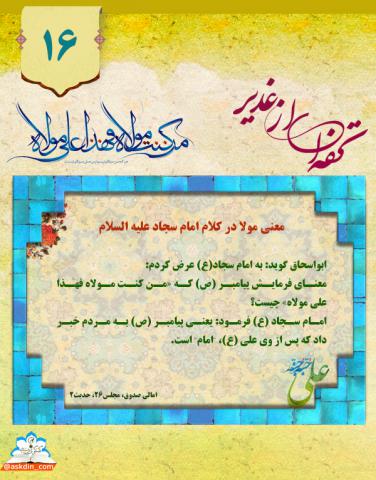 ۱۶
از غدیر
من کنت مولاه فهذا علی مولاه
معنی مولا در کلام امام سجاد علیه السلام
ابواسحاق گوید: به امام سجاد(ع) عرض کردم:
معنای فرمایش پیامبر (ص) که «من کنت مولاه فهذا
علی مولاه» چیست؟
امام سجاد (ع) فرمود: یعنی پیامبر (ص) به مردم خبر
داد که پس از وی علی (ع)، "امام" است.
علی
امالی صدوق، مجلس۲۶، حدیث۲
@askdin_com